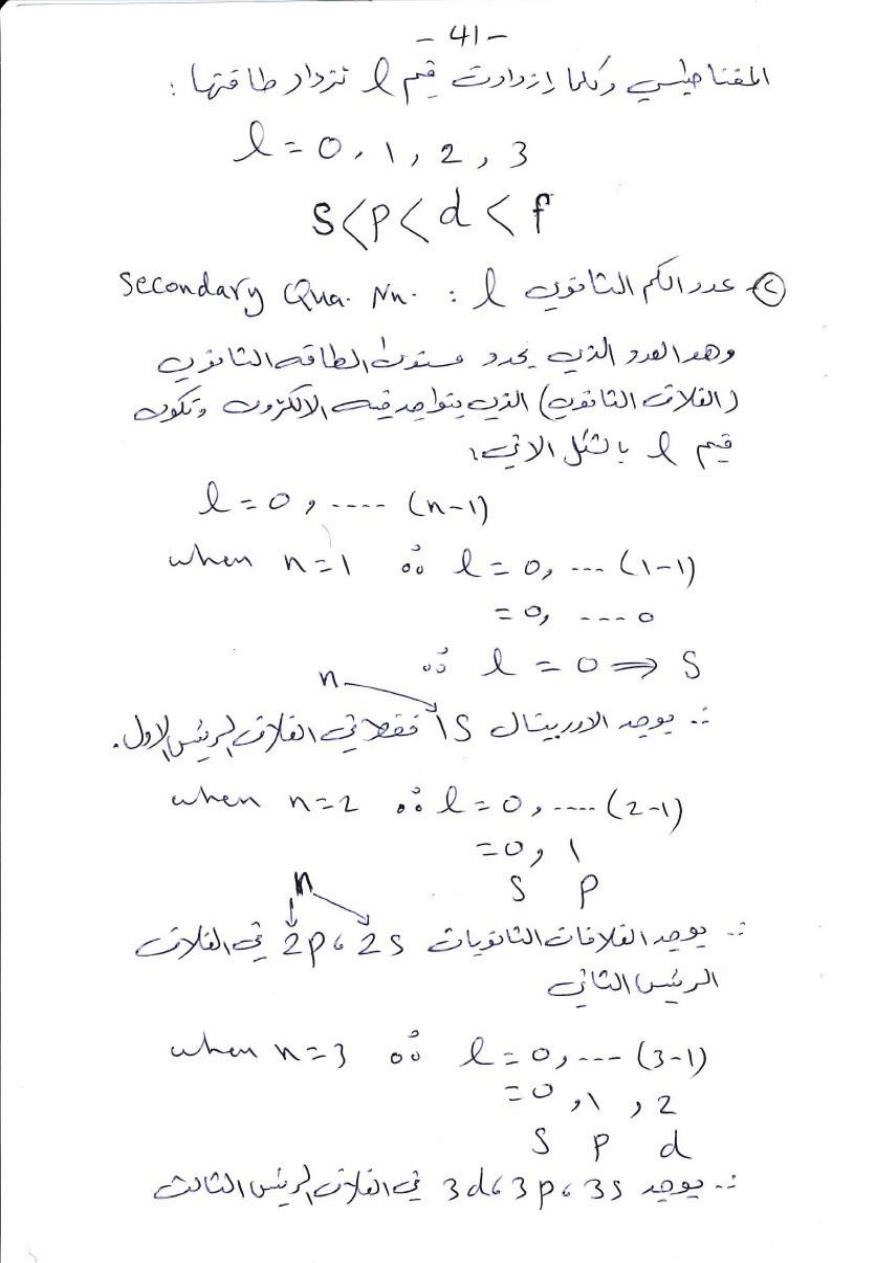 - 41 -
المغناطيسي وكلما إزدادت قيم l تزداد طاقتها :
l = 0 , 1 , 2 , 3
s < p < d < f
٢- عدد الكم الثانوي l : Secondary Qua. Nu.
وهو العدد الذي يحدد مستوى الطاقة الثانوي
(الغلاف الثانوي) الذي يتواجد فيه الالكترون وتكون
قيم l بالشكل الاتي:
l = 0 , ---- (n-1)
when n=1 ∴ l = 0, --- (1-1)
= 0, ---- 0
∴ l = 0 ⇒ S
n
∴ يوجد الاوربيتال 1S فقط في الغلاف الرئيس الاول.
when n=2 ∴ l = 0 , ---- (2-1)
= 0 , 1
S P
n
∴ يوجد الغلافات الثانويات 2s ، 2p في الغلاف
الرئيس الثاني
when n=3 ∴ l = 0, --- (3-1)
= 0 , 1 , 2
S P d
∴ يوجد 3s ، 3p ، 3d في الغلاف الرئيس الثالث